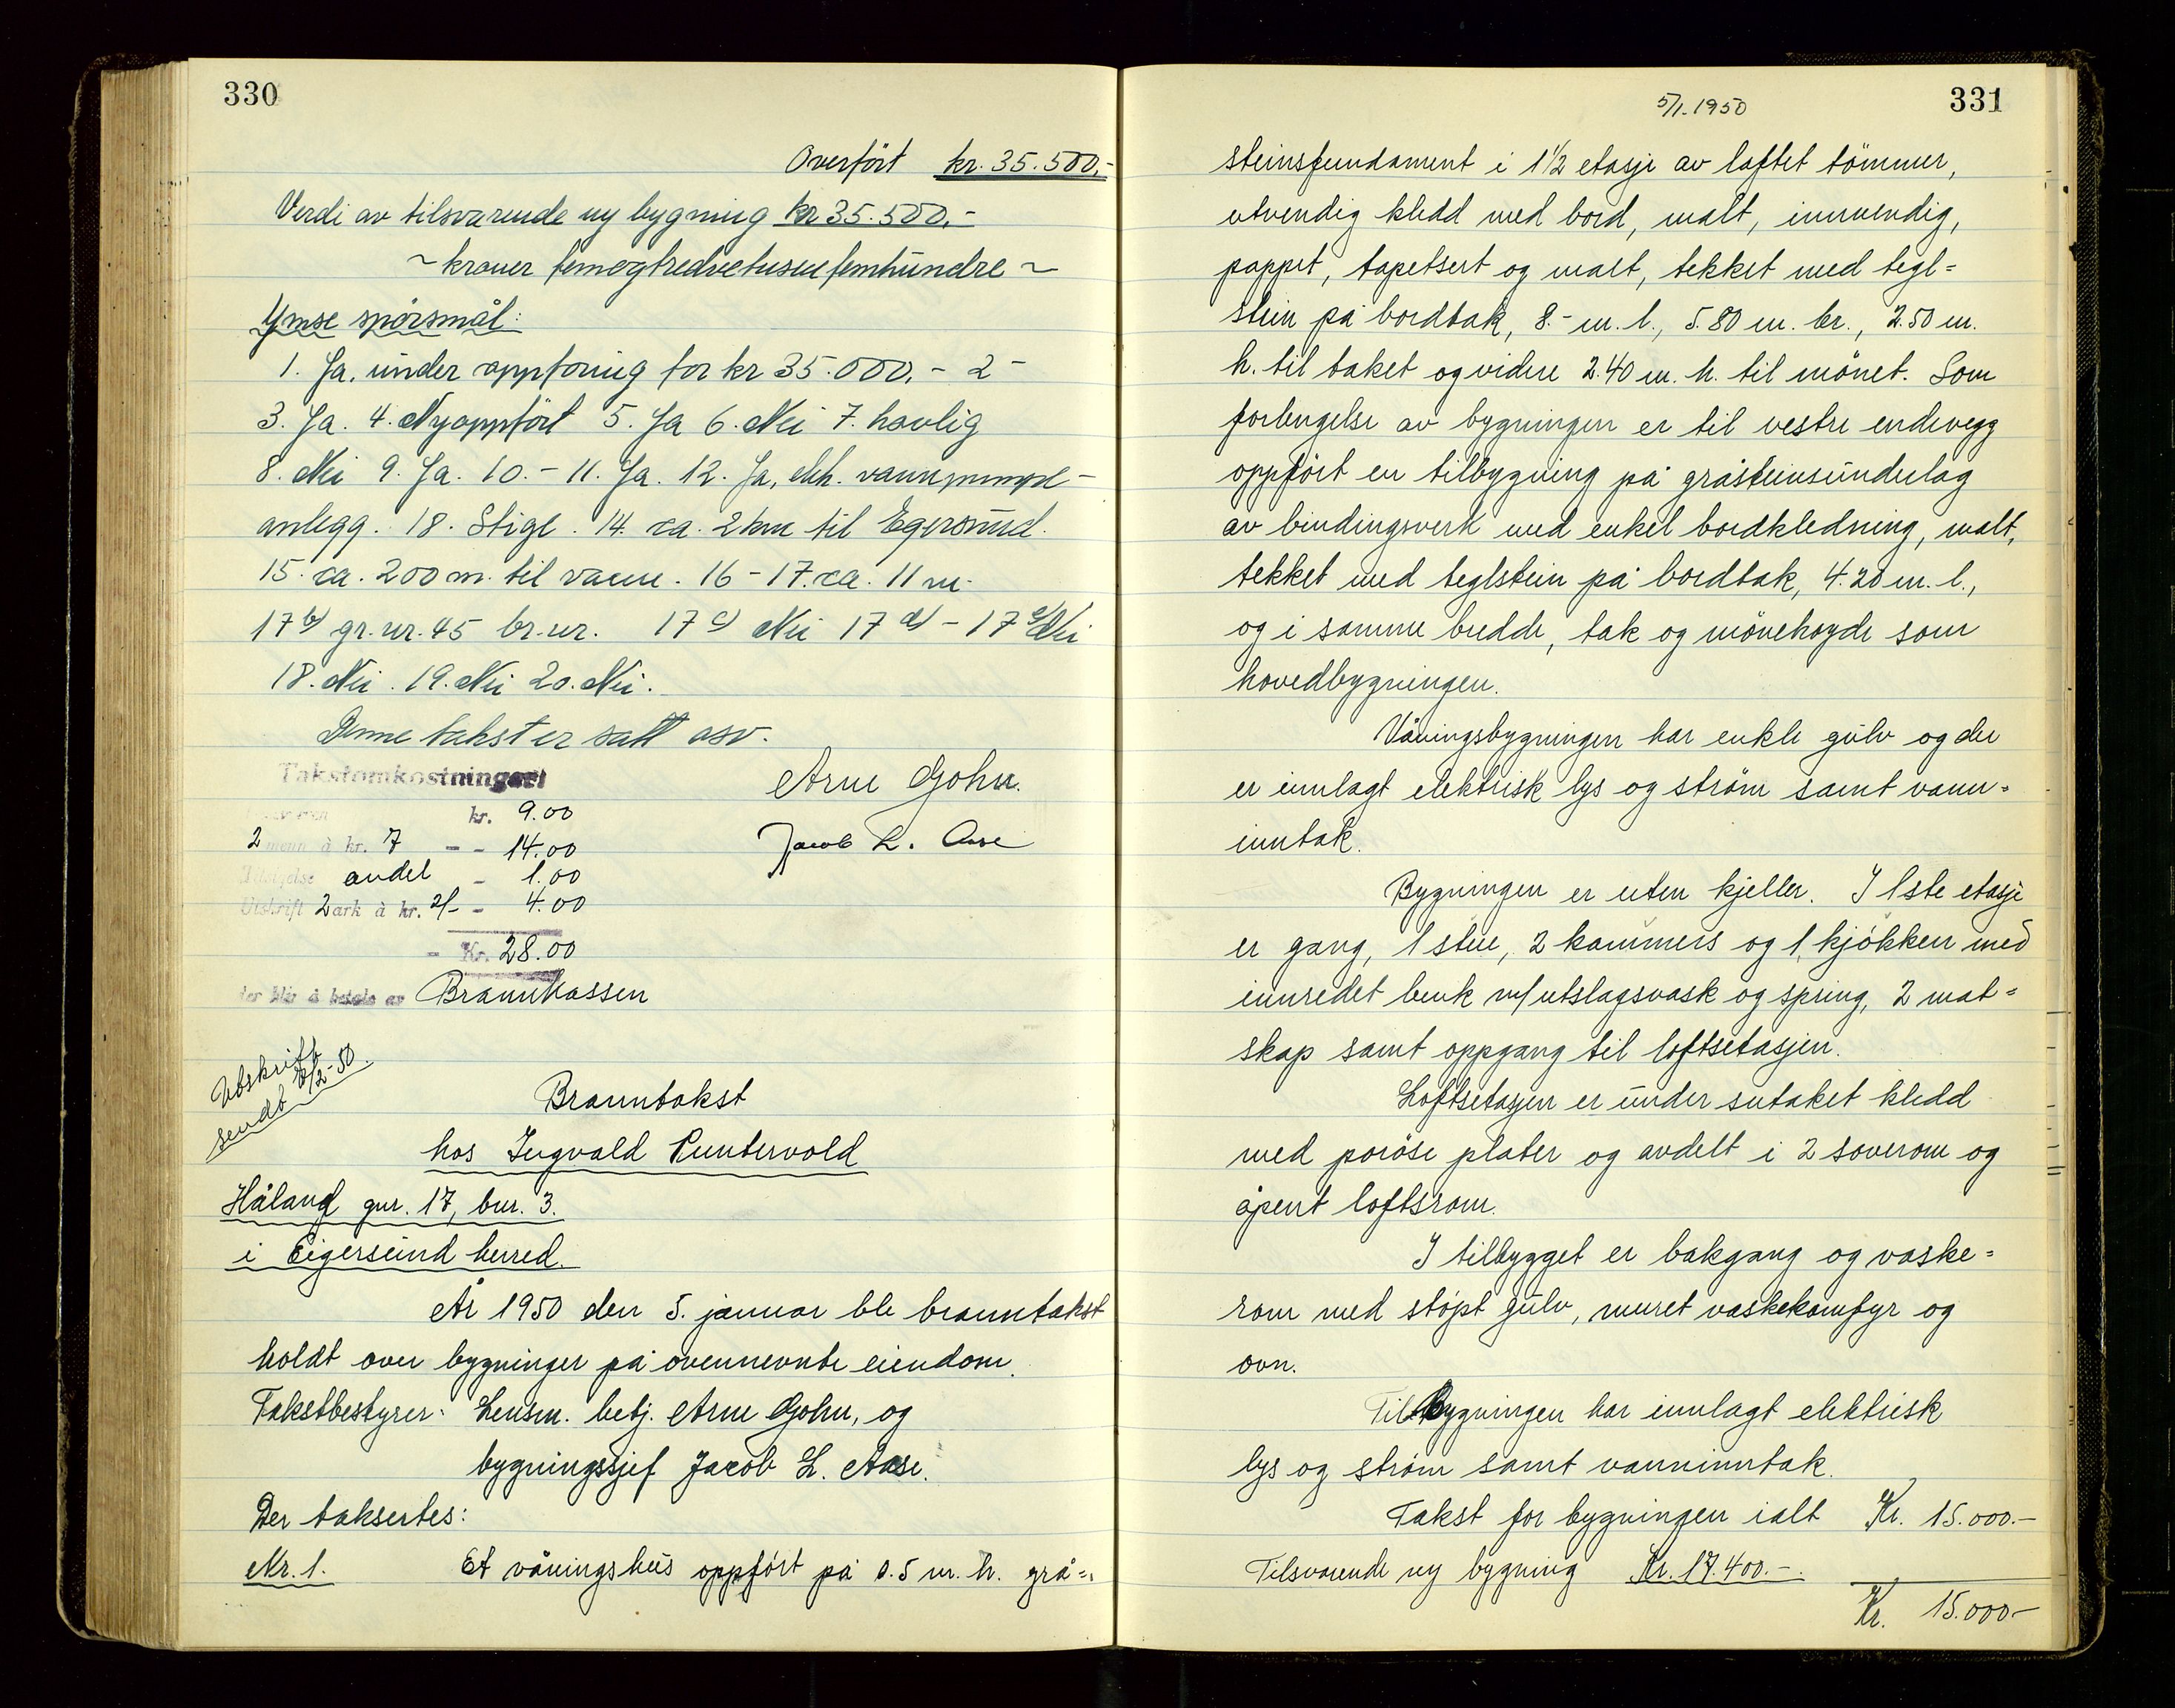 330
Overført kr. 35.500,-
Verdi av tilsvarende ny bygning kr 35.500.-
~ kroner femogtredvetusenfemhundre ~
Ymse spørsmål:
1. Ja. under oppføring for kr 35.000.- 2 -
3. Ja. 4. Nyoppført 5. Ja 6. Nei 7. havlig
8. Nei 9. Ja. 10. - 11. Ja. 12. Ja, elek. vannpumpe-
anlegg. 13. Stige. 14. ca. 2 km til Egersund.
15. ca. 200 m. til vann. 16 - 17. ca. 11 m.
17 b) gr. nr. 45 br. nr. 17 c) Nei 17 d) - 17 e) Nei
18. Nei. 19. Nei 20. Nei.
Denne takst er satt osv.
Takstomkostninger:
Arne Gohn.
kr. 9.00
2 menn à kr. 7 - - 14.00
Jacob L. Aase
andel - 1.00
Utskrift 2 ark à kr. 2/- - 4.00
- Kr. 28.00
der blir å betale av Brannkassen
Utskrift
sendt /2-50.
Branntakst
hos Ingvald Puntervold
Håland gnr. 17, bnr. 3.
i Eigersund herred.
År 1950 den 5. januar ble branntakst
holdt over bygninger på ovennevnte eiendom.
Takstbestyrer: Lensm. betj. Arne Gohn, og
bygningssjef Jacob L. Aase.
Der taksertes:
Nr. 1. Et våningshus oppført på 0.5 m. h. grå=
5/1-1950
331
steinsfundament i 1 1/2 etasje av laftet tømmer,
utvendig kledd med bord, malt, innvendig,
pappet, tapetsert og malt, tekket med tegl=
stein på bordtak, 8.- m. l., 5.80 m. br., 2.50 m.
h. til taket og videre 2.40 m. h. til mønet. Som
forlengelse av bygningen er til vestre endevegg
oppført en tilbygning på gråsteinsunderlag
av bindingsverk med enkel bordkledning, malt,
tekket med teglstein på bordtak, 4.20 m. l.,
og i samme bredde, tak og mønehøyde som
hovedbygningen.
Våningsbygningen har enkle gulv og der
er innlagt elektrisk lys og strøm samt vann=
inntak.
Bygningen er uten kjeller. I 1ste etasje
er gang, 1 stue, 2 kammers og 1 kjøkken med
innredet benk m/utslagsvask og spring, 2 mat=
skap samt oppgang til loftsetasjen.
Loftsetasjen er under sutaket kledd
med porøse plater og avdelt i 2 soverom og
åpent loftsrom.
I tilbygget er bakgang og vaske=
rom med støpt gulv, muret vaskekomfyr og
ovn.
Tilbygningen har innlagt elektrisk
lys og strøm samt vanninntak.
Takst for bygningen ialt Kr. 15.000.-
Tilsvarende ny bygning Kr. 17.400.-.
Kr. 15.000-